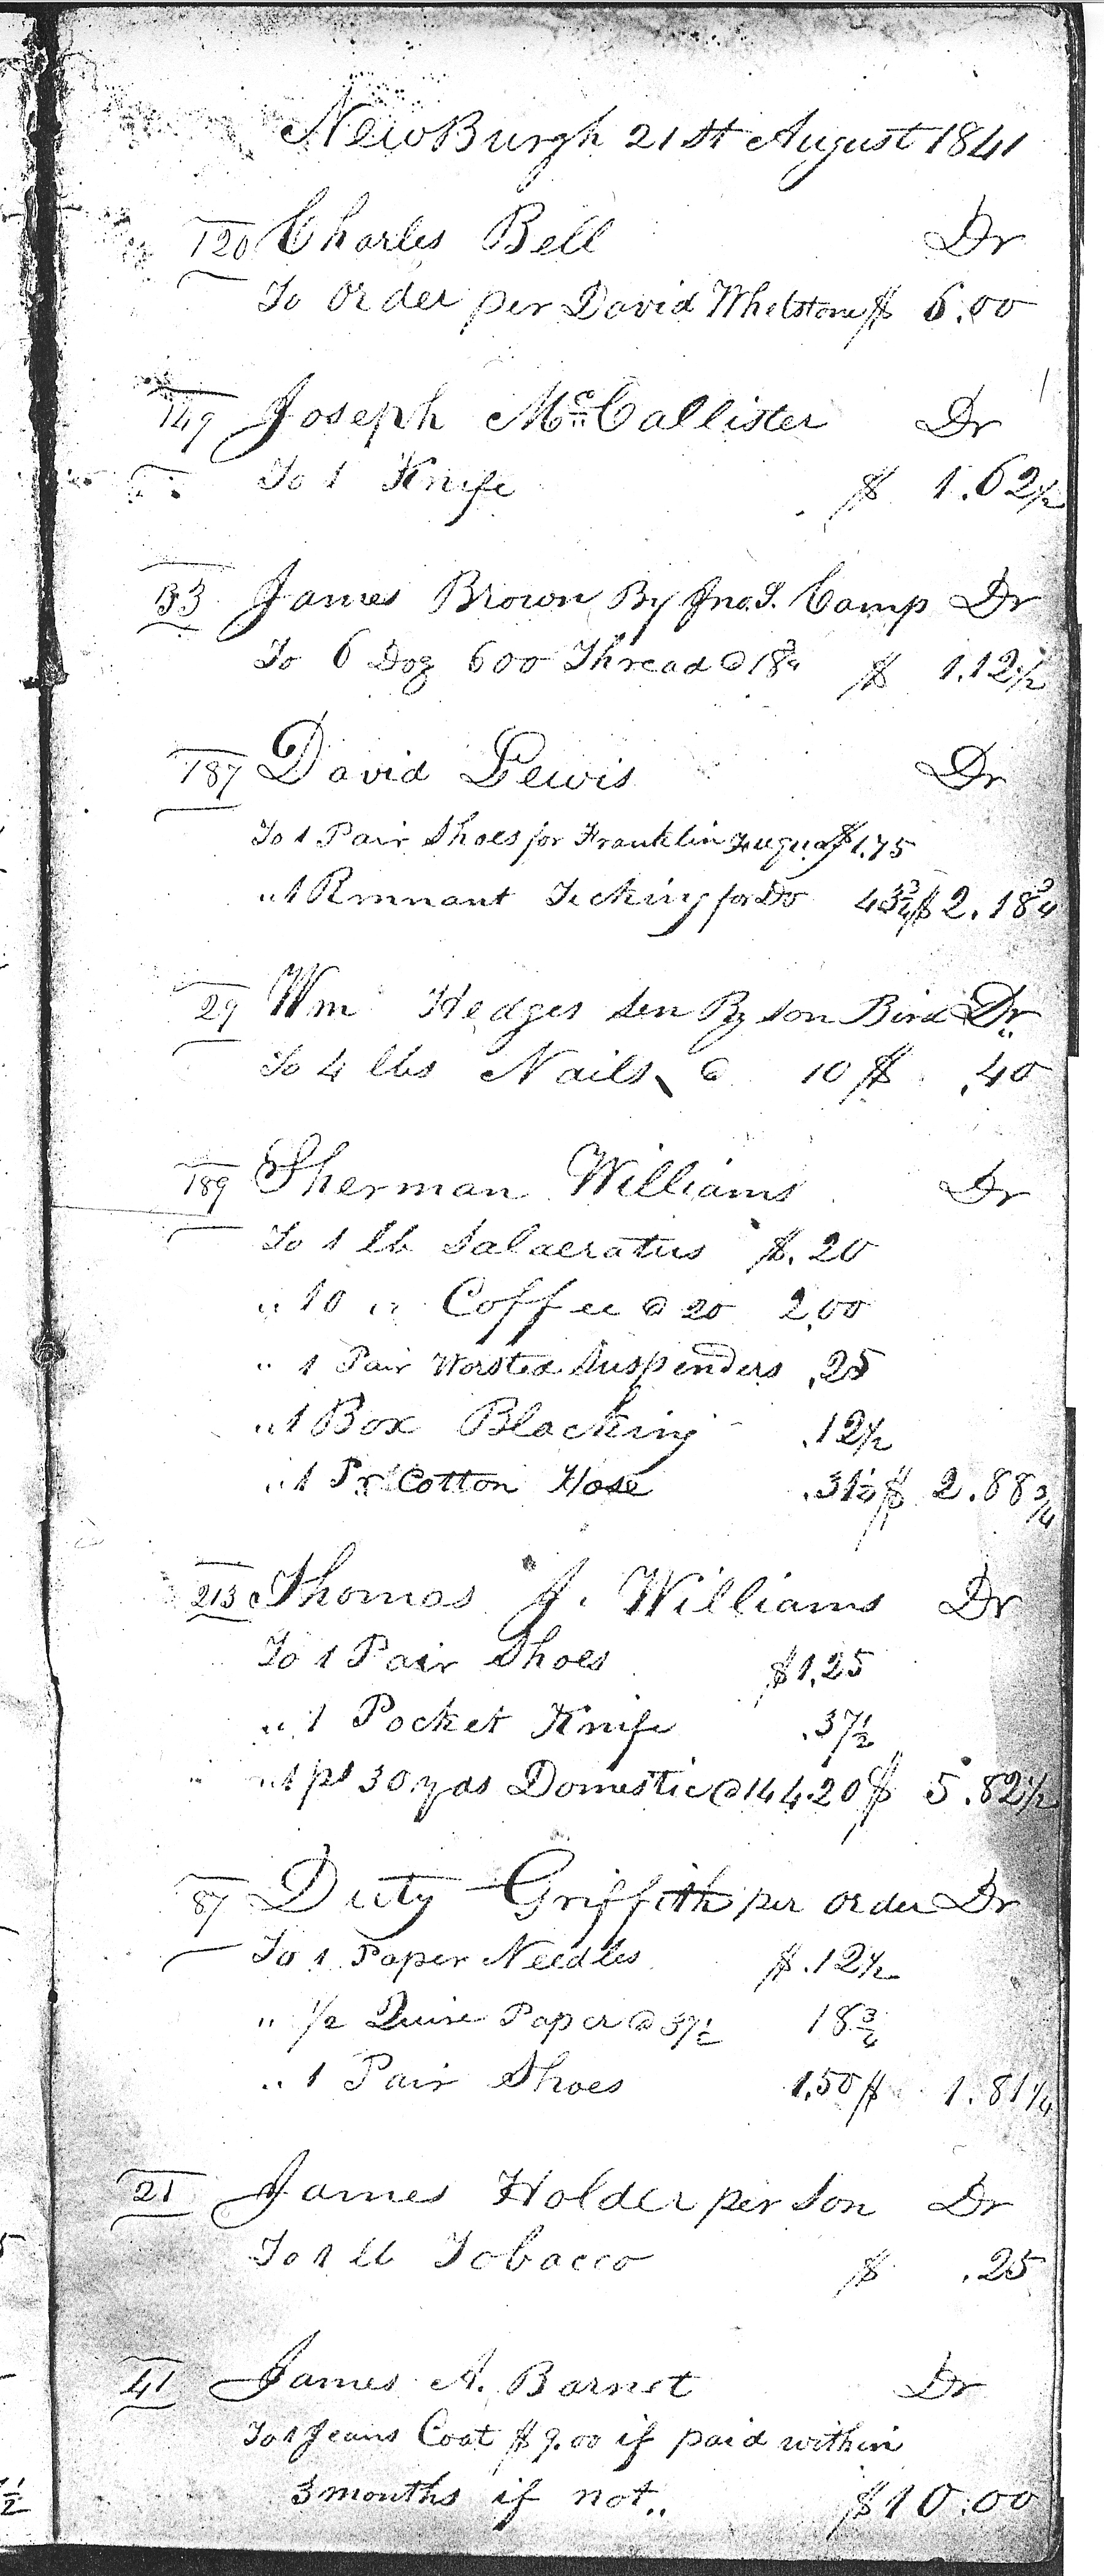 NewBurgh 21st August 1841
120 Charles Bell Dr
To order per David Whetstone $ 6.00
149 Joseph McCallister Dr
To 1 Knife $ 1.62½
33 James Brown By Jno. S. Camp Dr
To 6 Doz 600 Thread @ 18¾ $ 1.12½
187 David Lewis Dr
To 1 Pair Shoes for Franklin $1.75
" 1 Remnant Ticking for Do 43¾ $ 2.18¾
29 Wm Hedges Sen By Son Bird Dr
To 4 lbs Nails @ 10 $ .40
189 Sherman Williams Dr
To 1 lb Salaeratus $ .20
" 10 " Coffee @ 20 2.00
" 1 Pair Worsted Suspenders .25
" 1 Box Blacking .12½
" 1 Pr Cotton Hose .31¼ $ 2.88¾
213 Thomas J. Williams Dr
To 1 Pair Shoes $1.25
" 1 Pocket Knife .37½
" 1 ps 30 yds Domestic @ 14 4.20 $ 5.82½
87 Duty Griffith per order Dr
To 1 Paper Needles $ .12½
" ½ Quire Paper @ 37½ 18¾
" 1 Pair Shoes 1.50 $ 1.81¼
21 James Holder per Son Dr
To 1 lb Tobacco $ .25
41 James A. Barnet Dr
To 1 Jeans Coat $9.00 if paid within
3 months if not.. $10.00